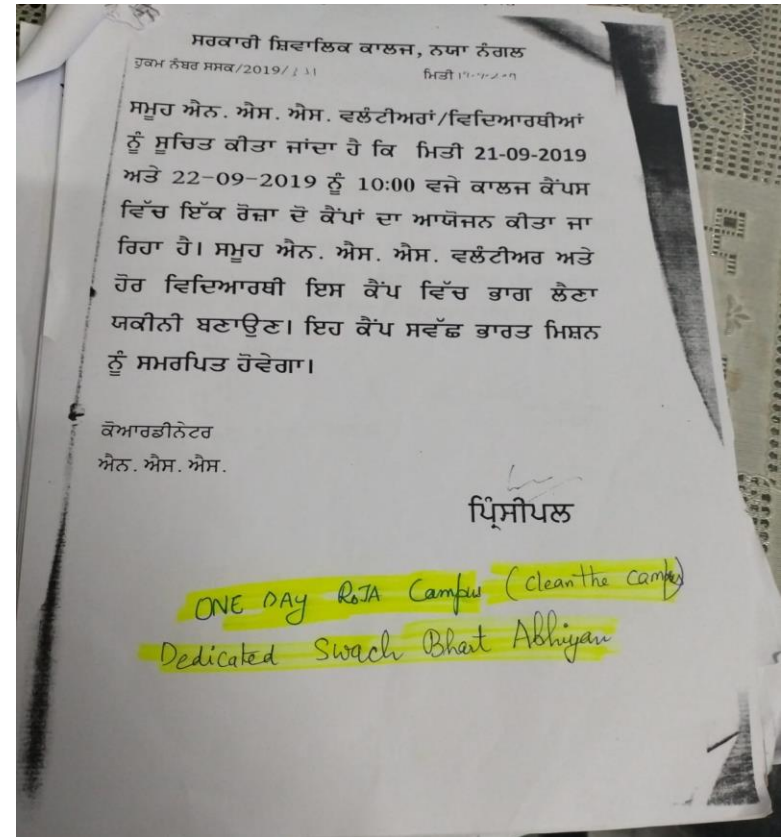 ਸਰਕਾਰੀ ਸ਼ਿਵਾਲਿਕ ਕਾਲਜ, ਨਯਾ ਨੰਗਲ
ਹੁਕਮ ਨੰਬਰ ਸਸਕ/2019/ ਮਿਤੀ
ਸਮੂਹ ਐਨ. ਐਸ. ਐਸ. ਵਲੰਟੀਅਰਾਂ/ਵਿਦਿਆਰਥੀਆਂ
ਨੂੰ ਸੂਚਿਤ ਕੀਤਾ ਜਾਂਦਾ ਹੈ ਕਿ ਮਿਤੀ 21-09-2019
ਅਤੇ 22-09-2019 ਨੂੰ 10:00 ਵਜੇ ਕਾਲਜ ਕੈਂਪਸ
ਵਿੱਚ ਇੱਕ ਰੋਜ਼ਾ ਦੋ ਕੈਂਪਾਂ ਦਾ ਆਯੋਜਨ ਕੀਤਾ ਜਾ
ਰਿਹਾ ਹੈ। ਸਮੂਹ ਐਨ. ਐਸ. ਐਸ. ਵਲੰਟੀਅਰ ਅਤੇ
ਹੋਰ ਵਿਦਿਆਰਥੀ ਇਸ ਕੈਂਪ ਵਿੱਚ ਭਾਗ ਲੈਣਾ
ਯਕੀਨੀ ਬਣਾਉਣ। ਇਹ ਕੈਂਪ ਸਵੱਛ ਭਾਰਤ ਮਿਸ਼ਨ
ਨੂੰ ਸਮਰਪਿਤ ਹੋਵੇਗਾ।
ਕੋਆਰਡੀਨੇਟਰ
ਐਨ. ਐਸ. ਐਸ.
ਪ੍ਰਿੰਸੀਪਲ
ONE DAy RoJA Campus (clean the campus)
Dedicated Swach Bhart Abhiyan